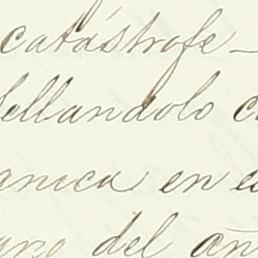 catástrofe —
sellandolo c
anica en e
del añ